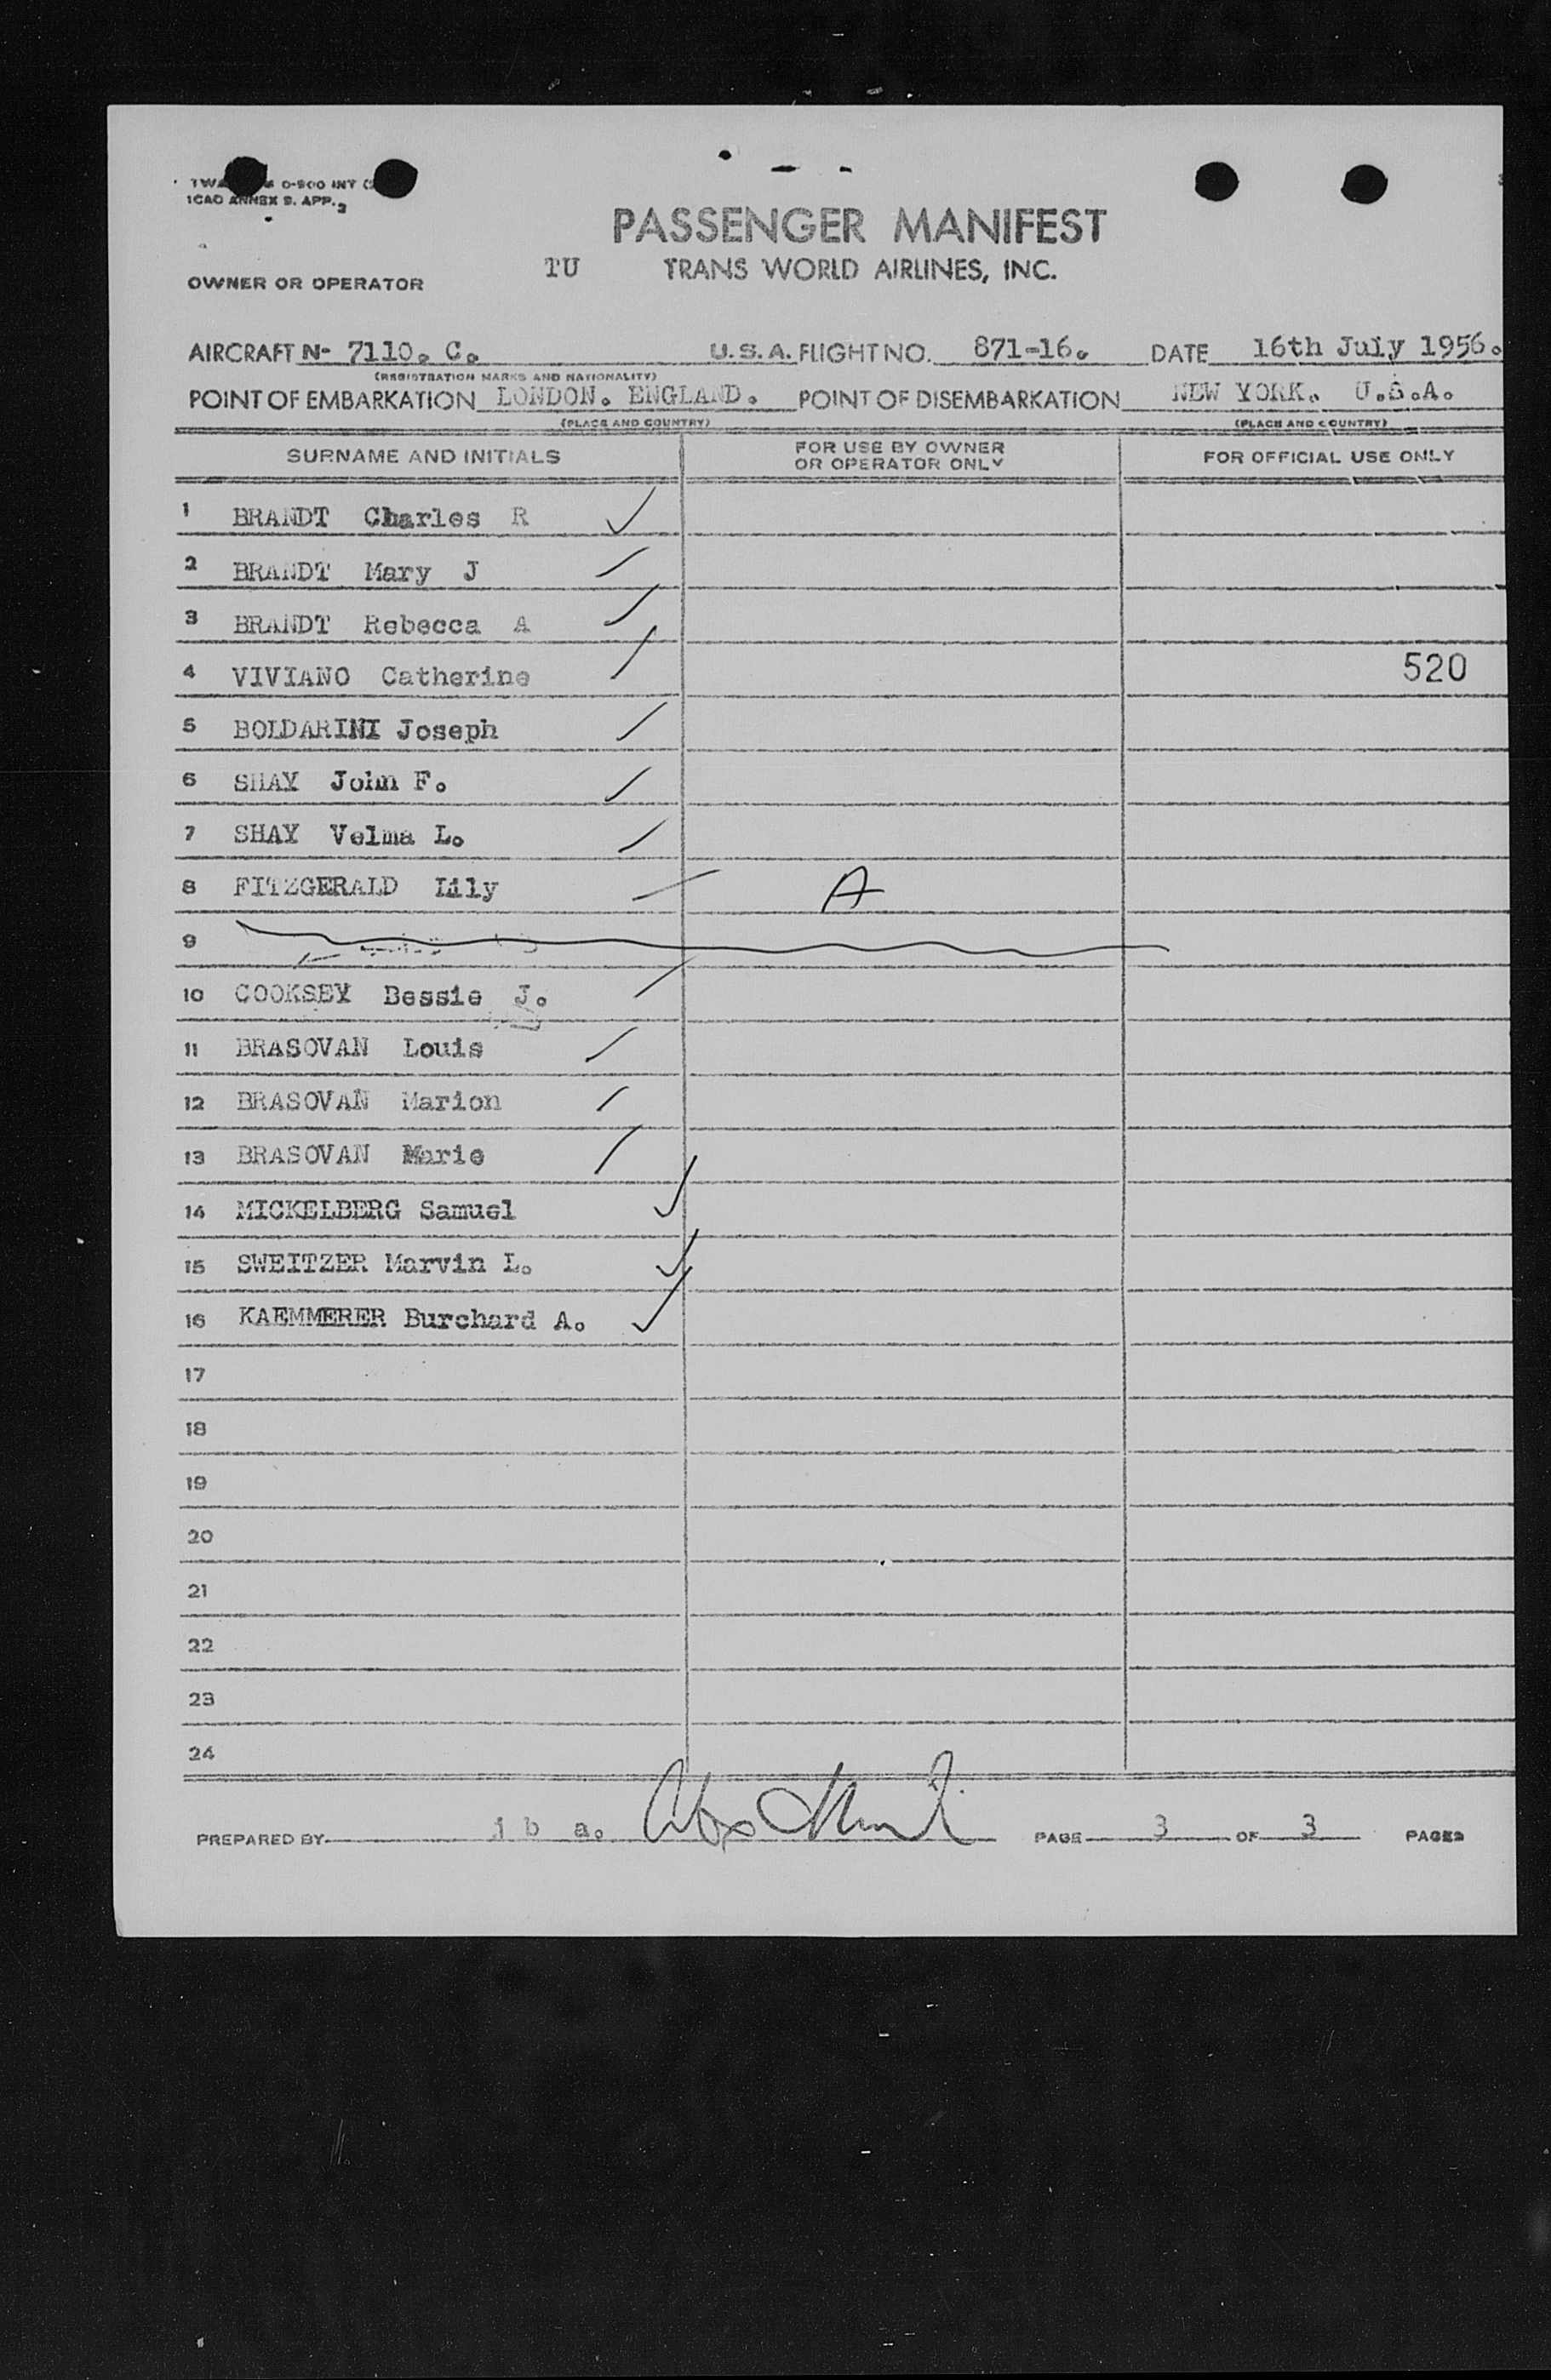 0-900 INT
ICAO ANNEX 9. APP. 2
PASSENGER MANIFEST
TU TRANS WORLD AIRLINES, INC.
OWNER OR OPERATOR
AIRCRAFT N- 7110. C. U.S.A. FLIGHT NO. 871-16. DATE 16th July 1956.
(REGISTRATION MARKS AND NATIONALITY)
POINT OF EMBARKATION LONDON. ENGLAND. POINT OF DISEMBARKATION NEW YORK. U.S.A.
(PLACE AND COUNTRY) (PLACE AND COUNTRY)
SURNAME AND INITIALS FOR USE BY OWNER OR OPERATOR ONLY FOR OFFICIAL USE ONLY
1 BRANDT Charles R
2 BRANDT Mary J
3 BRANDT Rebecca A
4 VIVIANO Catherine 520
5 BOLDARINI Joseph
6 SHAY John F.
7 SHAY Velma L.
8 FITZGERALD Lily A
9
10 COOKSEY Bessie J.
11 BRASOVAN Louis
12 BRASOVAN Marion
13 BRASOVAN Marie
14 MICKELBERG Samuel
15 SWEITZER Marvin L.
16 KAEMMERER Burchard A.
17
18
19
20
21
22
23
24
PREPARED BY j b a. PAGE 3 OF 3 PAGES